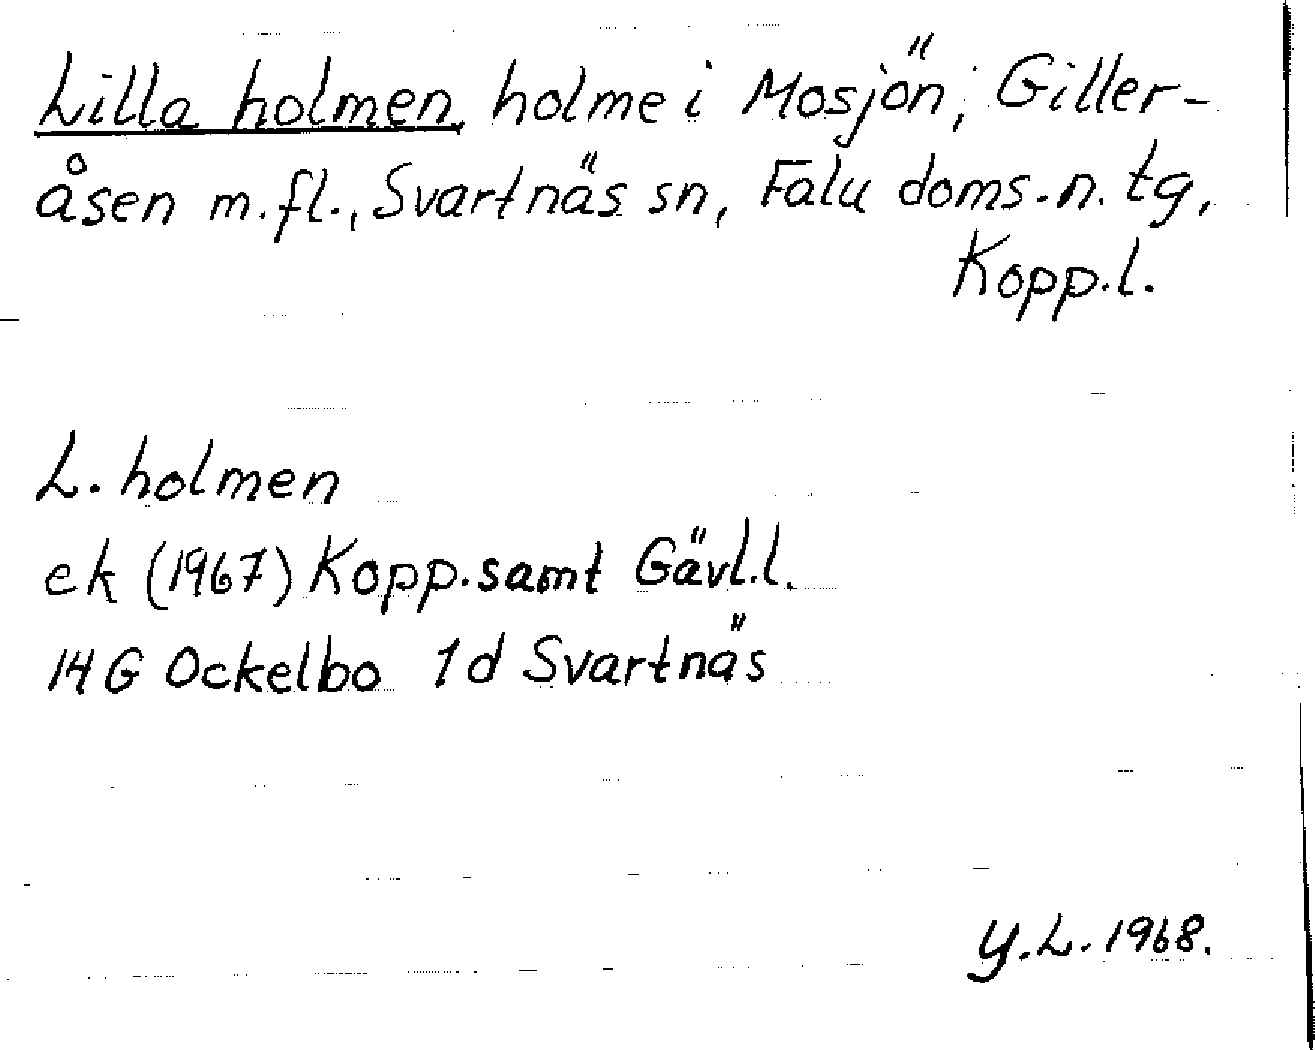 Lilla holmen, holme i Mosjön, Giller-
åsen m.fl., Svartnäs sn, Falu doms.n. tg,
Kopp.l.
L. holmen
ek (1967) Kopp. samt Gävl.l.
14 G Ockelbo 1d Svartnäs
Y.L. 1968.